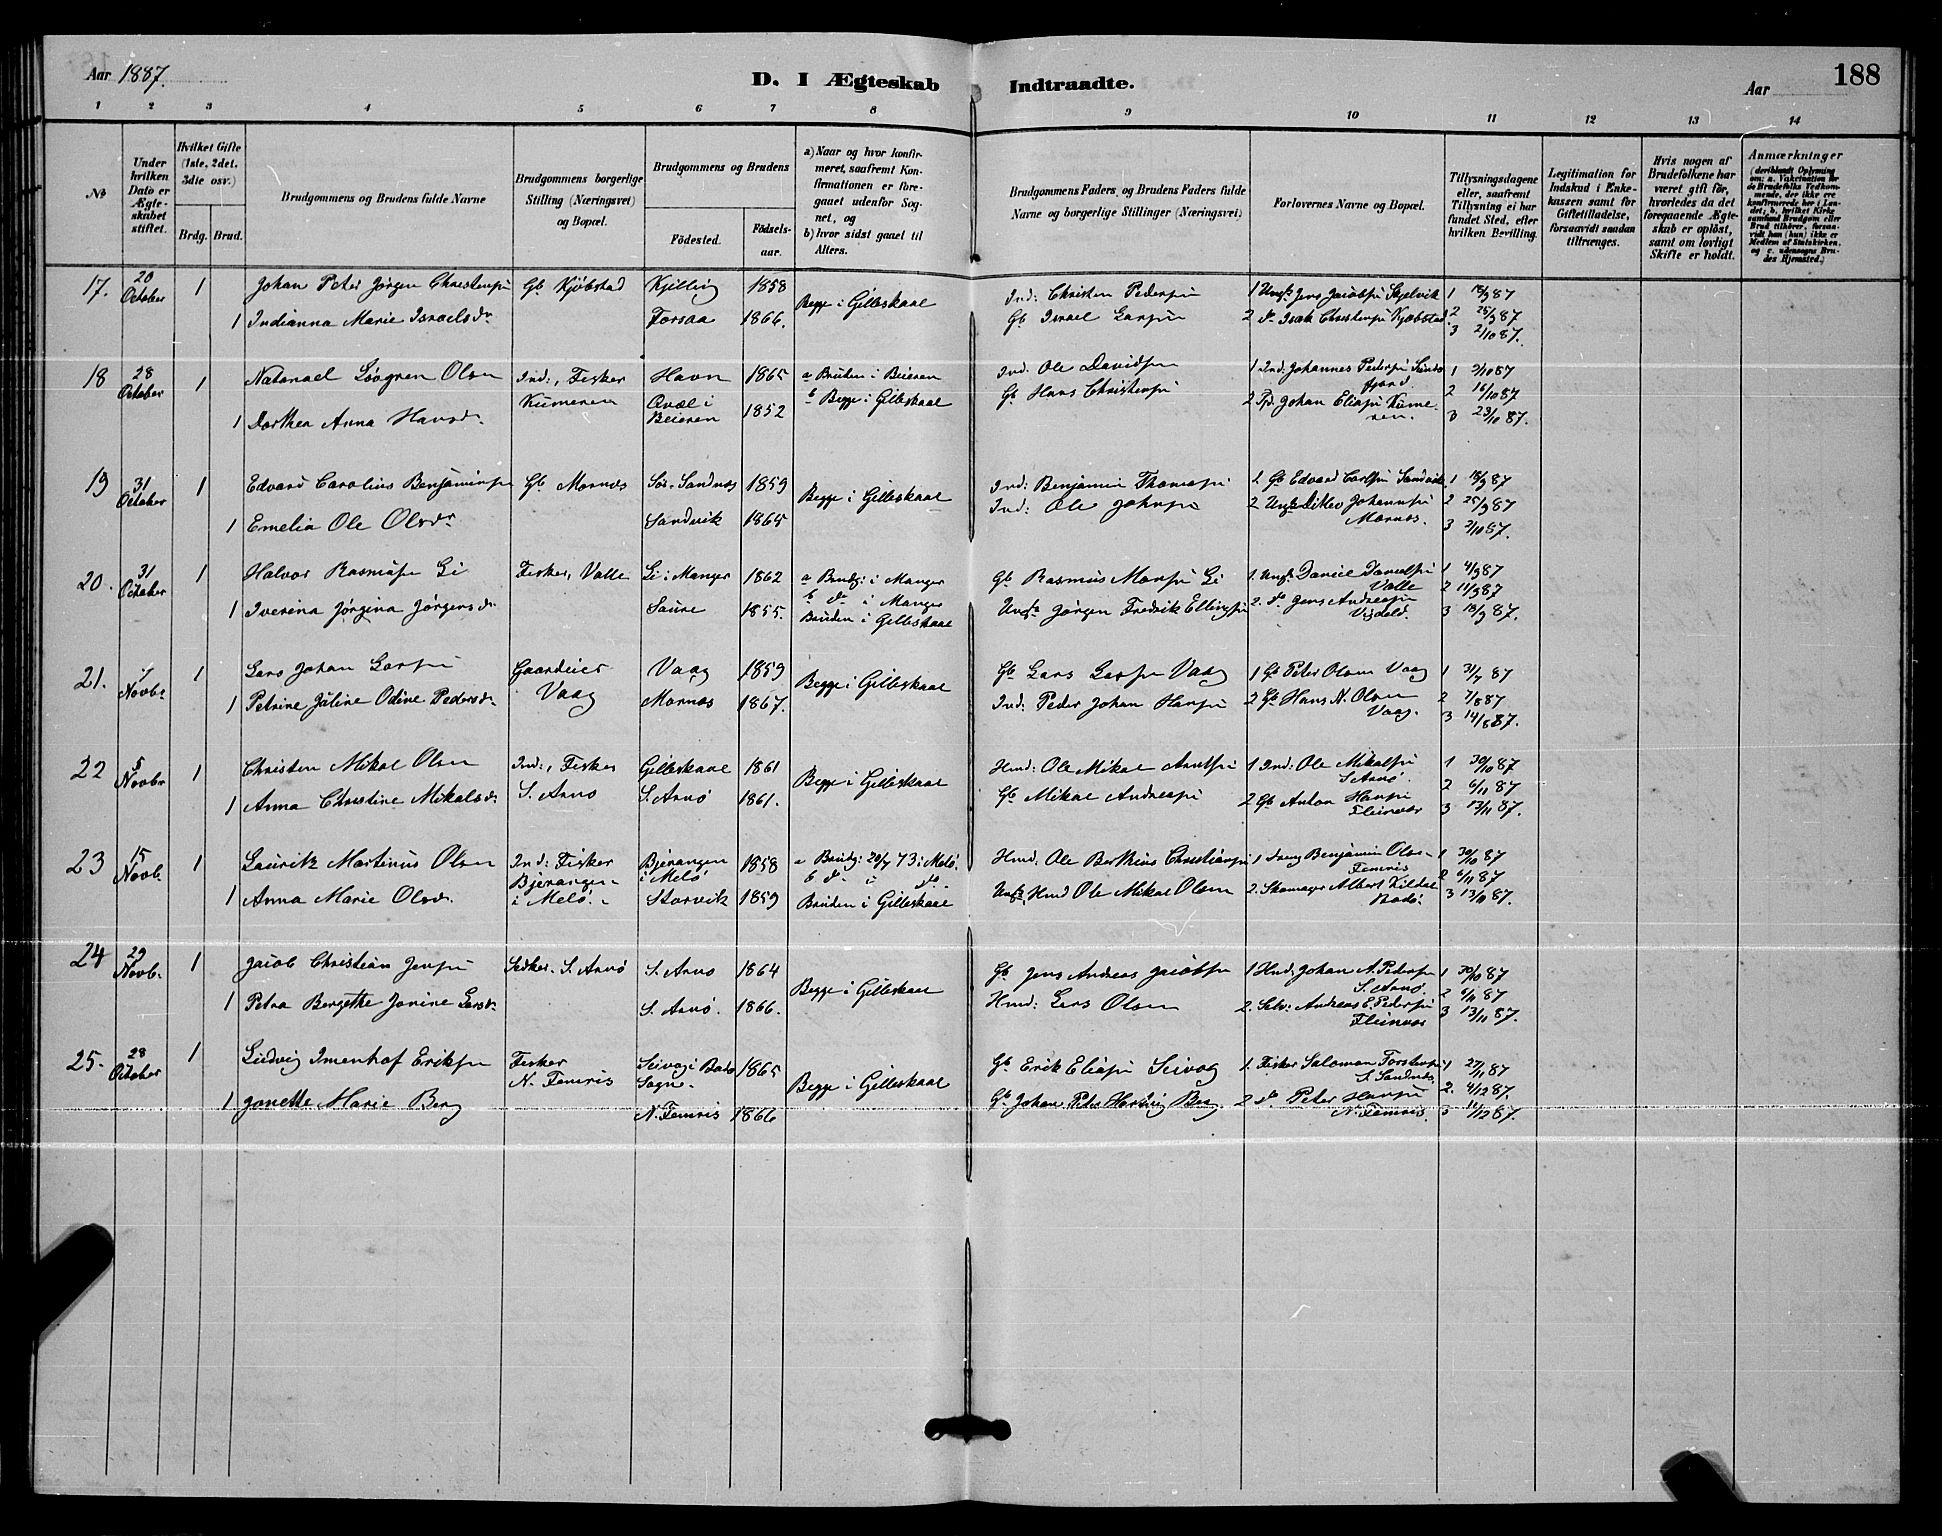 Aar 1887.
D. I Ægteskab Indtraadte.
Aar
188
1 2 3 4 5 6 7 8 9 10 11 12 13 14
No
Under hvilken Dato er Ægteskabet stiftet.
Hvilket Gifte (1ste, 2det, 3die osv.)
Brdg. Brud.
Brudgommens og Brudens fulde Navne
Brudgommens borgerlige Stilling (Næringsvei) og Bopæl.
Brudgommens og Brudens
Födested.
Födselsaar.
a) Naar og hvor konfirmeret, saafremt Konfirmationen er foregaaet udenfor Sognet, og
b) hvor sidst gaaet til Alters.
Brudgommens Faders, og Brudens Faders fulde Navne og borgerlige Stillinger (Næringsvei)
Forlovernes Navne og Bopæl.
Tillysningsdagene eller, saafremt Tillysning ei har fundet Sted, efter hvilken Bevilling.
Legitimation for Indskud i Enkekassen samt for Giftetilladelse, forsaavidt saadan tiltrænges.
Hvis nogen af Brudefolkene har været gift før, hvorledes da det foregaaende Ægteskab er oplöst, samt om lovligt Skifte er holdt.
Anmærkninger
17. 20 October 1 Johan Peter Jørgen Christensen Gb. Kjøbstad Kjelling 1858 Begge i Gilleskaal Ind: Christen Pedersen 1 Ungk. Jens Jacobsen Skjelvik 1 18/9 87
1 Indianna Marie Israelsdr Forsaa 1866. Gb Israel Larsen 2 do Isak Christensen Kjøbstad 2 25/9 87
3 2/10 87.
18 28 October 1 Natanael Løvgren Olsen Ind:, Fisker Havn 1865 a Bruden i Beieren Ind. Ole Davidsen 1 Ind: Johannes Pedersen 1 9/10 87
Beieren 1852 b Begge i Gilleskaal Gb Hans Christensen 2 Johan Eliasen 2 16/10 87
1 Dorthea Anna Hansdr. 3 23/10 87.
19 31 October 1 Edvard Carolius Benjaminsen Gb. Mornes Sør-Sandnes 1859 Begge i Gilleskaal Ind: Benjamin Thomasen 1 Gb Edvard Carlsen Sandvik 1 18/9 87
1 Emelia Ole Olsdr Sandvik 1865 Ind: Ole Johnsen 2 Ungk. Ditlev Johannsen 2 25/9 87
Mornes. 3 2/10 87.
20. 31 October 1 Halvor Rasmusen Li Fisker, Valle Li i Manger 1862 a Brudg: i Manger Gb Rasmus Monsen Li 1. Ungk. Daniel Danielsen 1 4/9 87
b do i Manger Valle 2 11/9 87
1 Iverina Jørgina Jørgensdr Saure 1855. Bruden i Gilleskaal Jørgen Fredrik Ellingsen 2. do Jens Andreasen 3 18/9 87.
21. 1/ Novbr 1 Lars Johan Larsen Gaardeier Vaag 1859 Begge i Gilleskaal Gb Lars Larsen Vaag 1 Gb Peter Olsen Vaag 1 31/7 87
1 Petrine Jåline Odine Pedersdr. Vaag Mornes 1867. Ind: Peder Johan Hansen 2 Gb Hans N. Olsen 2 7/8 87
Vaag. 3 14/8 87.
22 5 Novbr 1 Christen Mikal Olsen Ind:, Fisker Gilleskaal 1861 Begge i Gilleskaal Hmd: Ole Mikal Arntsen 1 Ind: Ole Mikalsen 1 30/10 87
S. Arnø 2 6/11 87
1 Anna Christine Mikalsdr. S. Arnø S. Arnø 1861. Gb Mikal Andreasen 2 Gb Anton Hansen 3 13/11 87.
Fleinvær
23 15 Novb. 1 Lauritz Martinus Olsen Ind: Fisker Bjerangen 1858 a Brudg: 20/7 73 i Melø. Hmd: Ole Berthius Christiansen 1 Dreng Benjamin Olsen 1 30/10 87
Bjerangen i Melø b do i do Femris 2 6/11 87
1 Anna Marie Olsdr. i Melø. Storvik 1859 Bruden i Gilleskaal Hmd Ole Mikal Olsen 2. Skomager Albert Kildal 3 13/10 87.
Bodø.
24 29 Novb. 1 Jacob Christian Jensen Fisker. S. Arnø S. Arnø 1864 Begge i Gilleskaal Gb Jens Andreas Jacobsen 1 Hmd, Johan A. Pedersen 1 30/10 87
S. Arnø. 2 6/11 87
1 Petra Bergette Janine Larsdr. S. Arnø. 1866. Hmd: Lars Olsen 2. Selv: Andreas E. Pedersen 3 13/11 87.
Fleinvær
25. 28 October 1 Ludvig Imenhof Eriksen Fisker Seivag i Bodø 1865 Begge i Gilleskaal Gb Erik Eliasen Seivog 1. Fisker Salomon Torstensen 1 27/11 87
N. Femris Sogn. S. Sandnes. 2. 4/12 87.
1 Jonette Marie Berg N. Femris 1866 Gb. Johan Peter Hartvig Berg. 2 do Peter Hansen 3 11/12 87.
N. Femris.